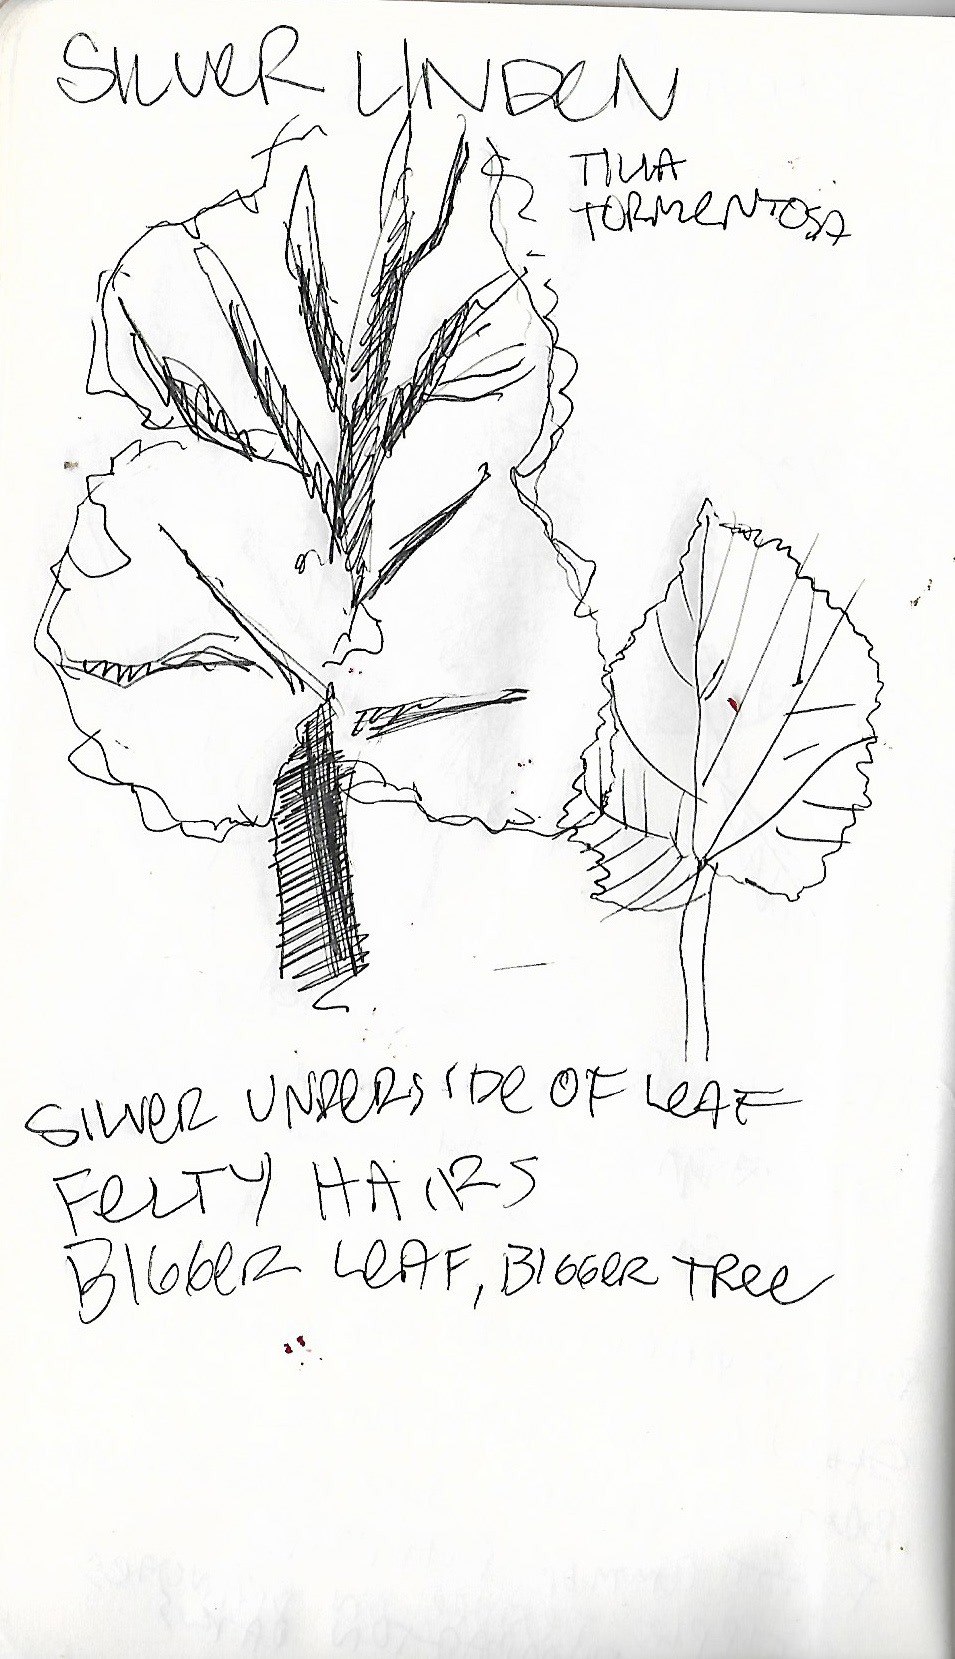 SILVER LINDEN
TILIA
TORMENTOSA
SILVER UNDERSIDE OF LEAF
FELTY HAIRS
BIGGER LEAF, BIGGER TREE